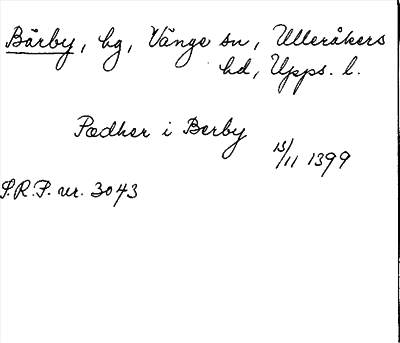 Bärby, hg, Vänge sn, Ulleråkers
hd, Upps. l.
Pædher i Berby
13/11 1399
S.R.P. nr. 3043